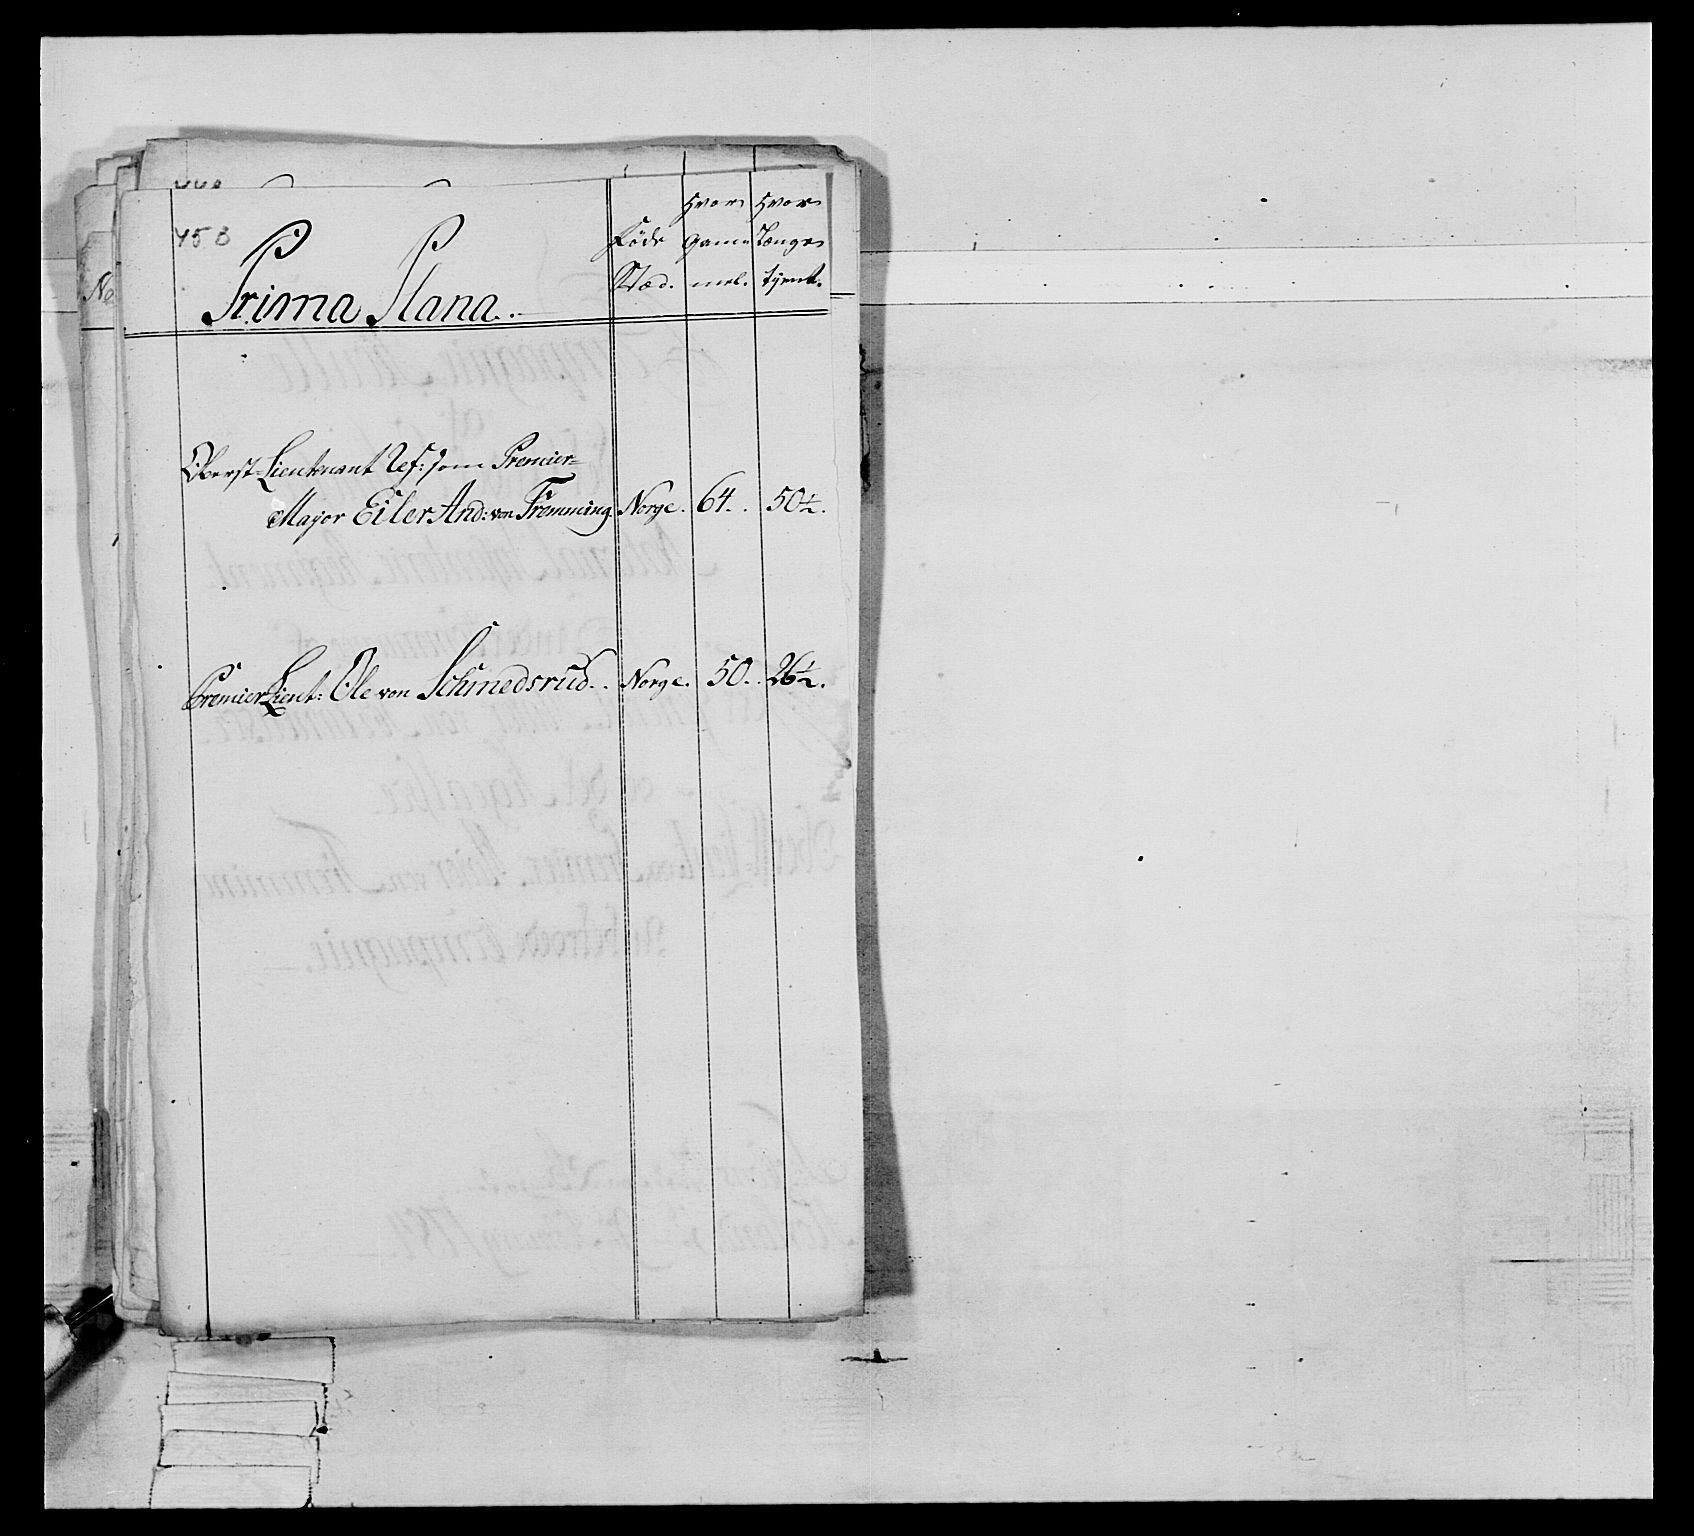 458
Prima Plana..
Føde Stæd.
Hvor Gammel.
Hvor Længe tjent.
Oberst-Lieutenant Ref: som Premier-
Major Eiler And: von Frømming. Norge. 64.. 50½.
Premier Lieut: Ole von Schmedsrud.. Norge. 50.. 26½.